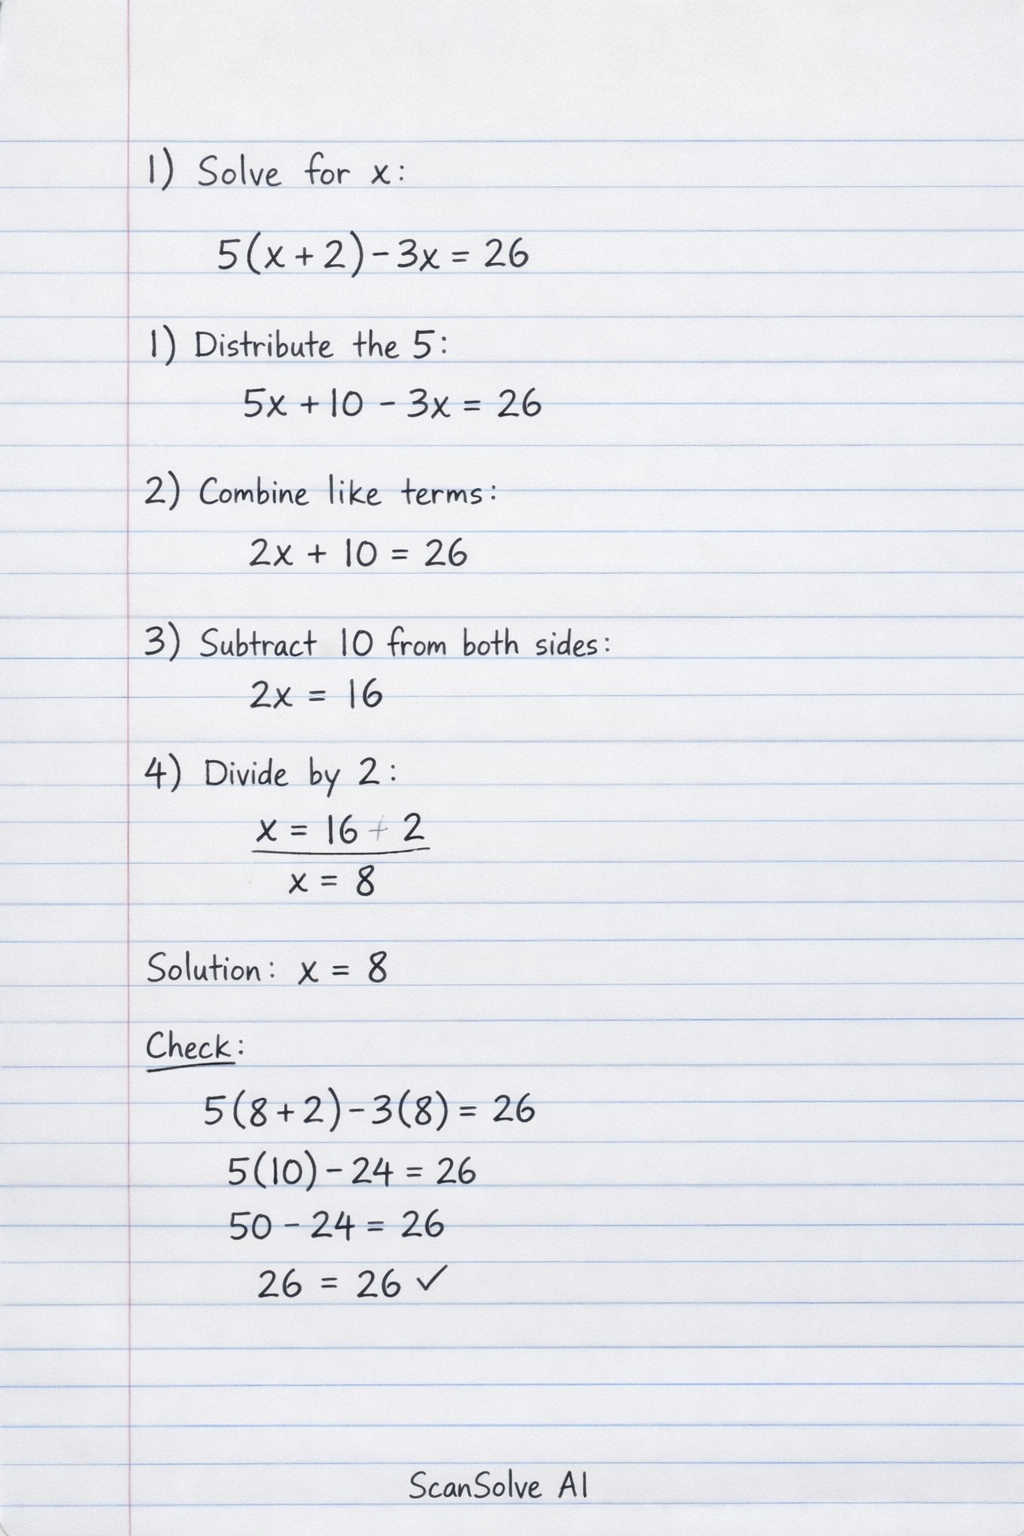 1) Solve for x:
5(x+2)-3x = 26
1) Distribute the 5:
5x + 10 - 3x = 26
2) Combine like terms:
2x + 10 = 26
3) Subtract 10 from both sides:
2x = 16
4) Divide by 2:
x = 16 + 2
x = 8
Solution: x = 8
Check:
5(8+2)-3(8) = 26
5(10)-24 = 26
50 - 24 = 26
26 = 26 ✓
ScanSolve AI